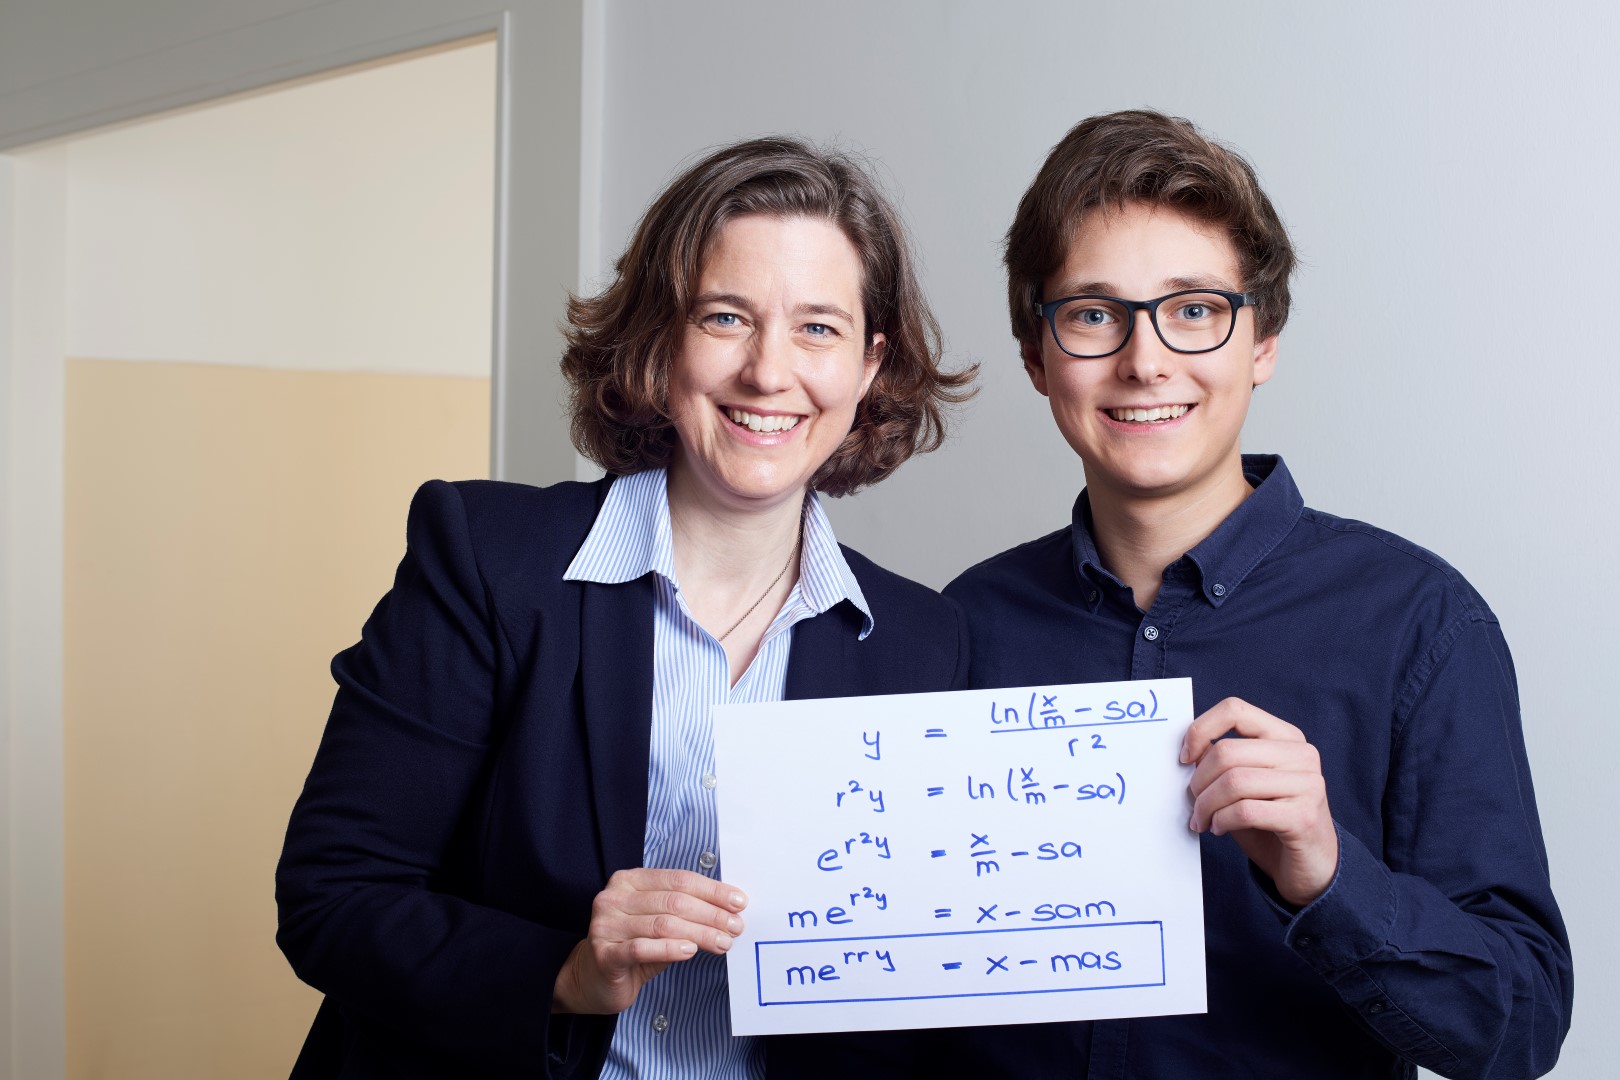 y = ln(x/m - sa)/r2
r²y = ln(x/m - sa)
e^r²y = x/m - sa
me^r²y = x - sam
me^rry = x - mas